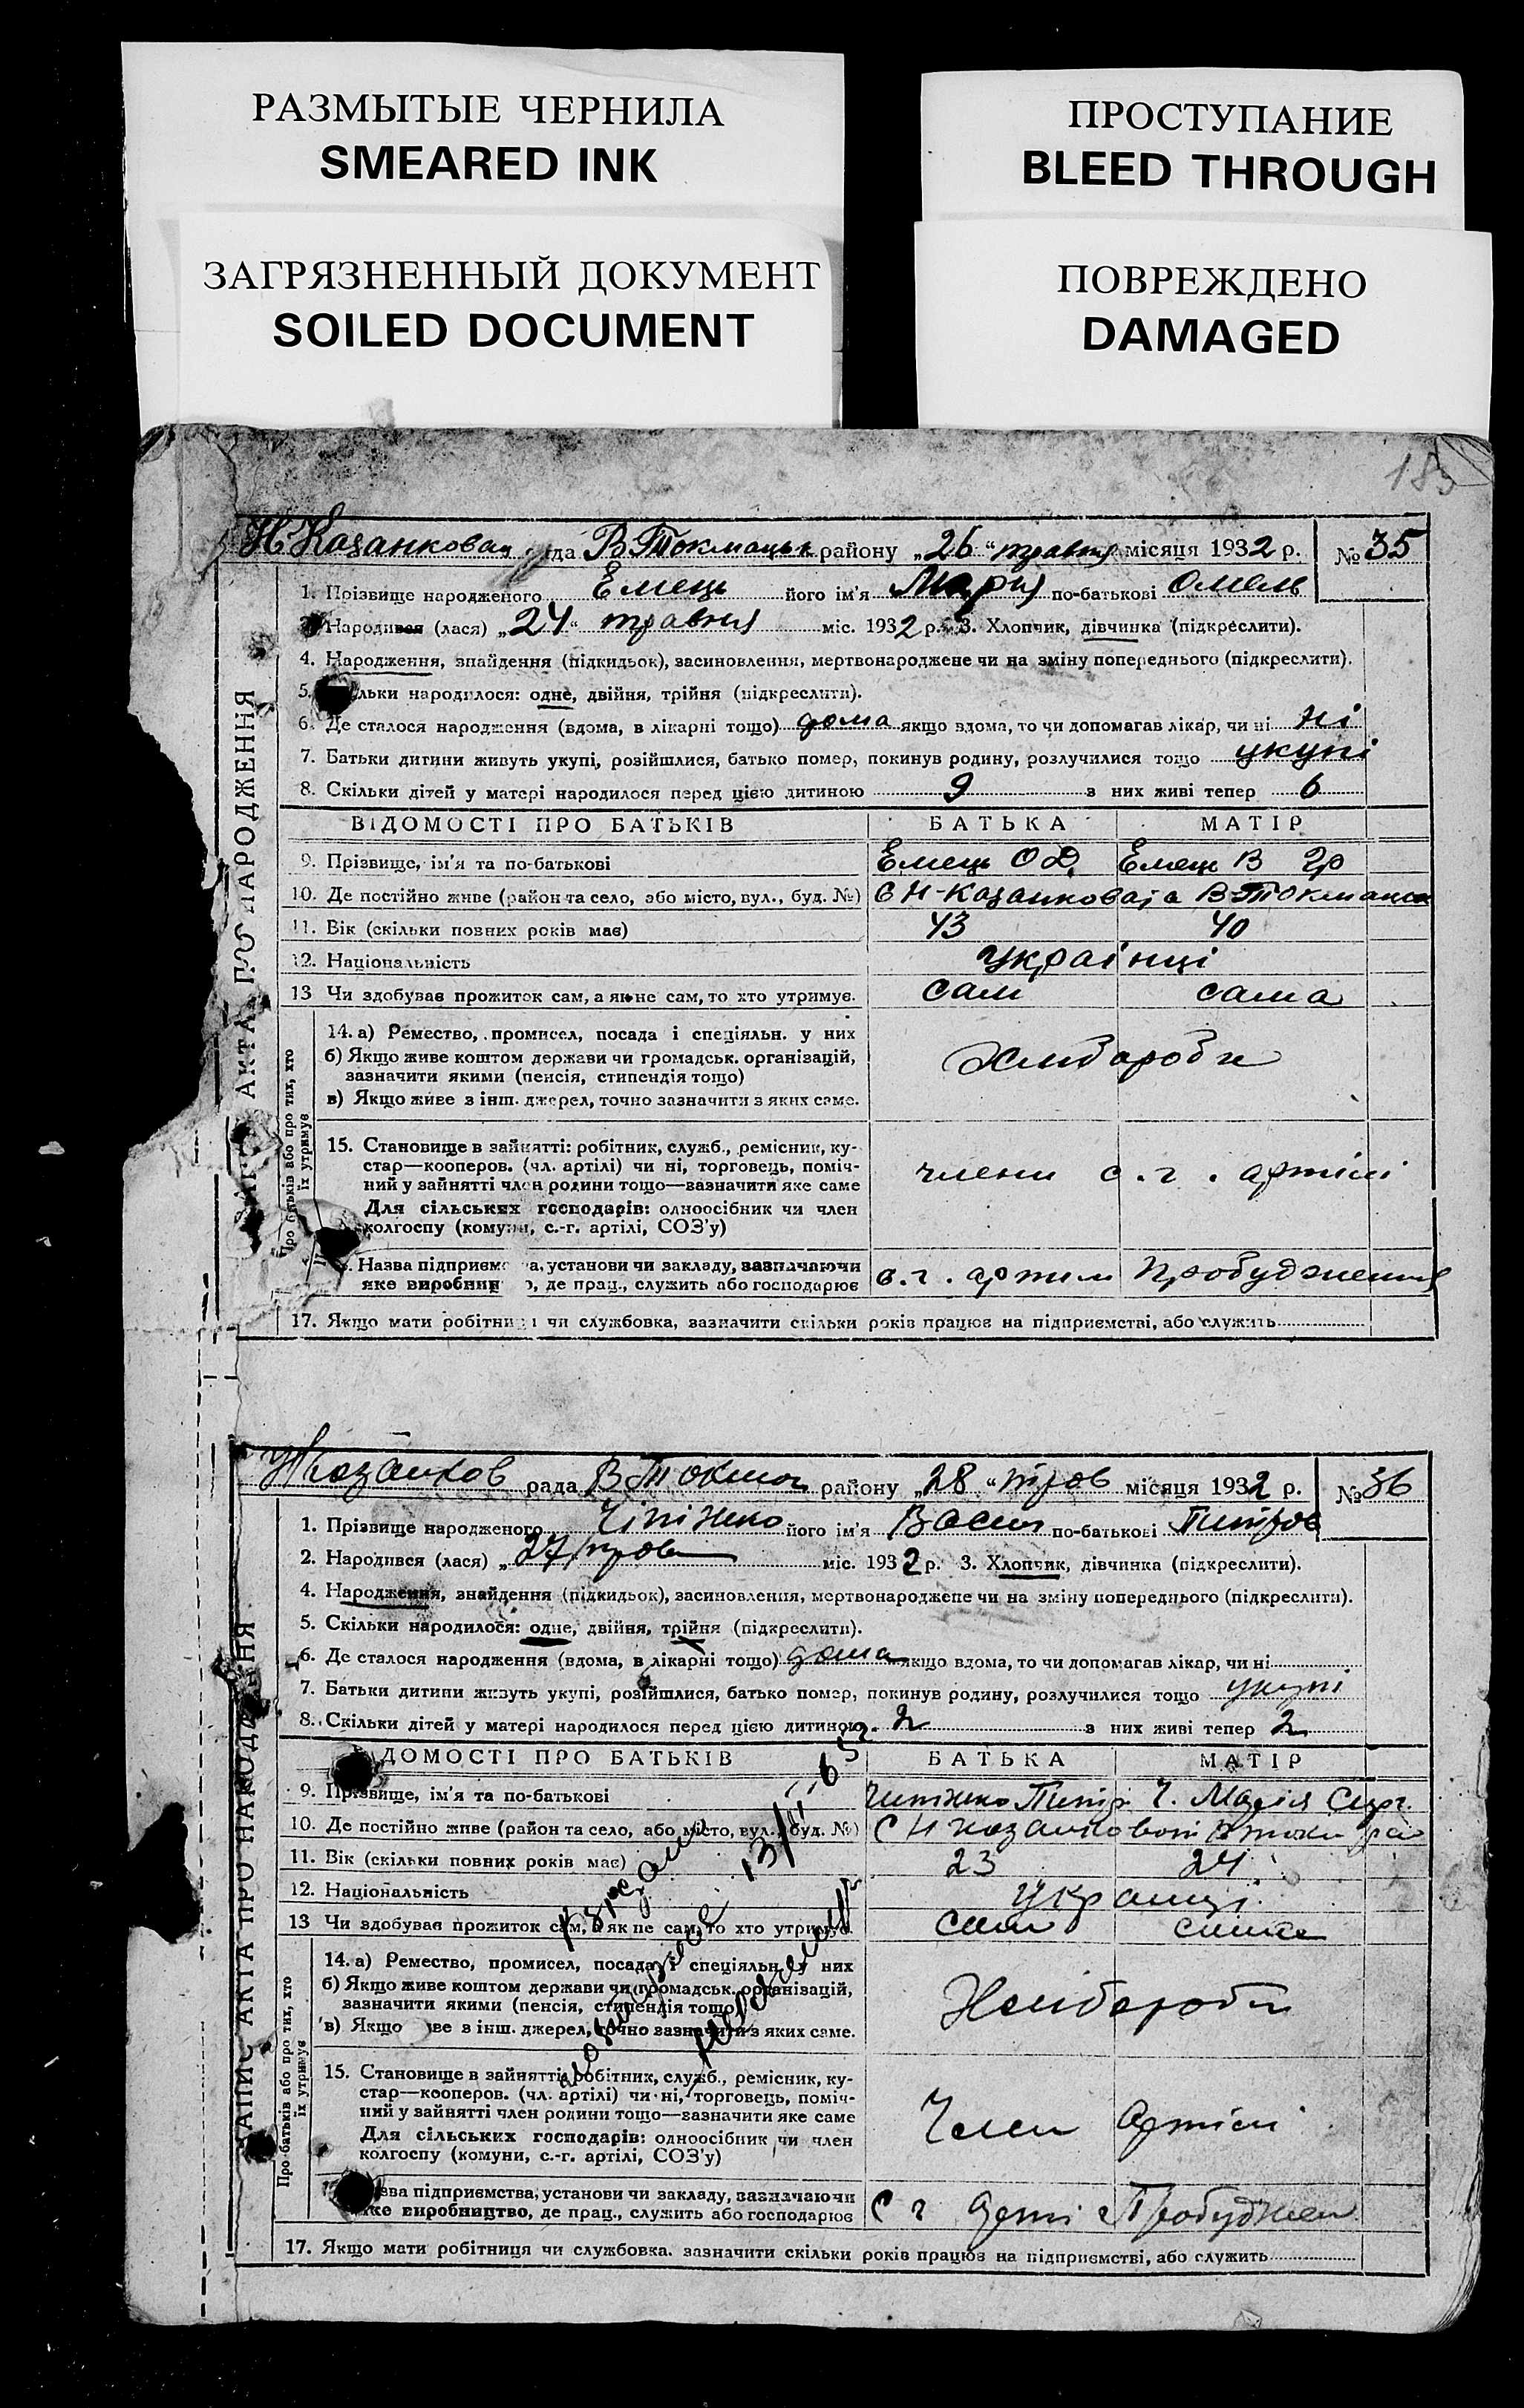 РАЗМЫТЫЕ ЧЕРНИЛА
SMEARED INK
ПРОСТУПАНИЕ
BLEED THROUGH
ЗАГРЯЗНЕННЫЙ ДОКУМЕНТ
SOILED DOCUMENT
ПОВРЕЖДЕНО
DAMAGED
183
Н Казанкова рада В Токмацьк району „26“ травня місяця 1932 р. № 35
1. Прізвище народженого Емець його ім'я Марія по-батькові Омель
Народився (лася) „24“ травня міс. 1932 р. 3. Хлопчик, дівчинка (підкреслити).
4. Народження, знайдення (підкидьок), засиновлення, мертвонароджене чи на зміну попереднього (підкреслити).
5. льки народилося: одне, двійня, трійня (підкреслити).
6. Де сталося народження (вдома, в лікарні тощо) дома якщо вдома, то чи допомагав лікар, чи ні ні
7. Батьки дитини живуть укупі, розійшлися, батько помер, покинув родину, розлучилися тощо укупі
8. Скільки дітей у матері народилося перед цією дитиною 9 з них живі тепер 6
ВІДОМОСТІ ПРО БАТЬКІВ БАТЬКА МАТІР
9. Прізвище, ім'я та по-батькові Емець О Д. Емець В Гр
10. Де постійно живе (район та село, або місто, вул., буд. №) С Н-Казанкова В-Токмацьк
11. Вік (скільки повних років має) 43 40
12. Національність українці
13 Чи здобував прожиток сам, а як не сам, то хто утримує. сам сама
14. а) Ремество, промисел, посада і спеціяльн. у них
б) Якщо живе коштом держави чи громадськ. організацій,
зазначити якими (пенсія, стипендія тощо)
Хлибороби
в) Якщо живе з інш. джерел, точно зазначити з яких саме.
15. Становище в зайнятті: робітник, служб., ремісник, ку-
стар—кооперов. (чл. артілі) чи ні, торговець, поміч-
ний у зайнятті член родини тощо—зазначити яке саме
члени с.г. артілі
Для сільських господарів: одноосібник чи член
колгоспу (комуни, с.-г. артілі, СОЗ'у)
Назва підприємс а, установи чи закладу, зазначаючи
яке виробниц о, де прац., служить або господарює с.г. артіли Пробудження
17. Якщо мати робітниця чи службовка, зазначити скільки років працює на підприємстві, або служить
АКТА ПРО НАРОДЖЕННЯ
Про батьків або про тих, хто
їх утримує
Н Козанков рада В Токмач району „28“ трав місяця 1932 р. № 36
1. Прізвище народженого Чіпіжко його ім'я Васил по-батькові Питров
2. Народився (лася) „27 трав міс. 1932 р. 3. Хлопчик, дівчинка (підкреслити).
4. Народження, знайдення (підкидьок), засиновлення, мертвонароджене чи на зміну попереднього (підкреслити).
5. Скільки народилося: одне, двійня, трійня (підкреслити).
6. Де сталося народження (вдома, в лікарні тощо) дома якщо вдома, то чи допомагав лікар, чи ні
7. Батьки дитини живуть укупі, розійшлися, батько помер, покинув родину, розлучилися тощо укупі
8. Скільки дітей у матері народилося перед цією дитиною 2 з них живі тепер 2
ДОМОСТІ ПРО БАТЬКІВ БАТЬКА МАТІР
9. Прізвище, ім'я та по-батькові Чипіжко Питр Ч. Марія Сирг.
10. Де постійно живе (район та село, або місто, вул., буд. №) С Н козанковоі В токм рай
11. Вік (скільки повних років має) 23 24
12. Національність украінці
13 Чи здобував прожиток сам, а як не сам, то хто утримує. сам сама
14. а) Ремество, промисел, посада і спеціяльн. у них
б) Якщо живе коштом держави чи громадськ. організацій,
зазначити якими (пенсія, стипендія тощо)
Хлибороби
в) Якщо ве з інш. джерел, точно зазначити з яких саме.
15. Становище в зайнятті: робітник, служб., ремісник, ку-
стар—кооперов. (чл. артілі) чи ні, торговець, поміч-
ний у зайнятті член родини тощо—зазначити яке саме
Член Артілі
Для сільських господарів: одноосібник чи член
колгоспу (комуни, с.-г. артілі, СОЗ'у)
зва підприємства, установи чи закладу, зазначаючи
яке виробництво, де прац., служить або господарює С г Арті Пробуджен
17. Якщо мати робітниця чи службовка. зазначити скільки років працює на підприємстві, або служить
ЗАПИС АКТА ПРО НАРОДЖЕННЯ
Про батьків або про тих, хто
їх утримує